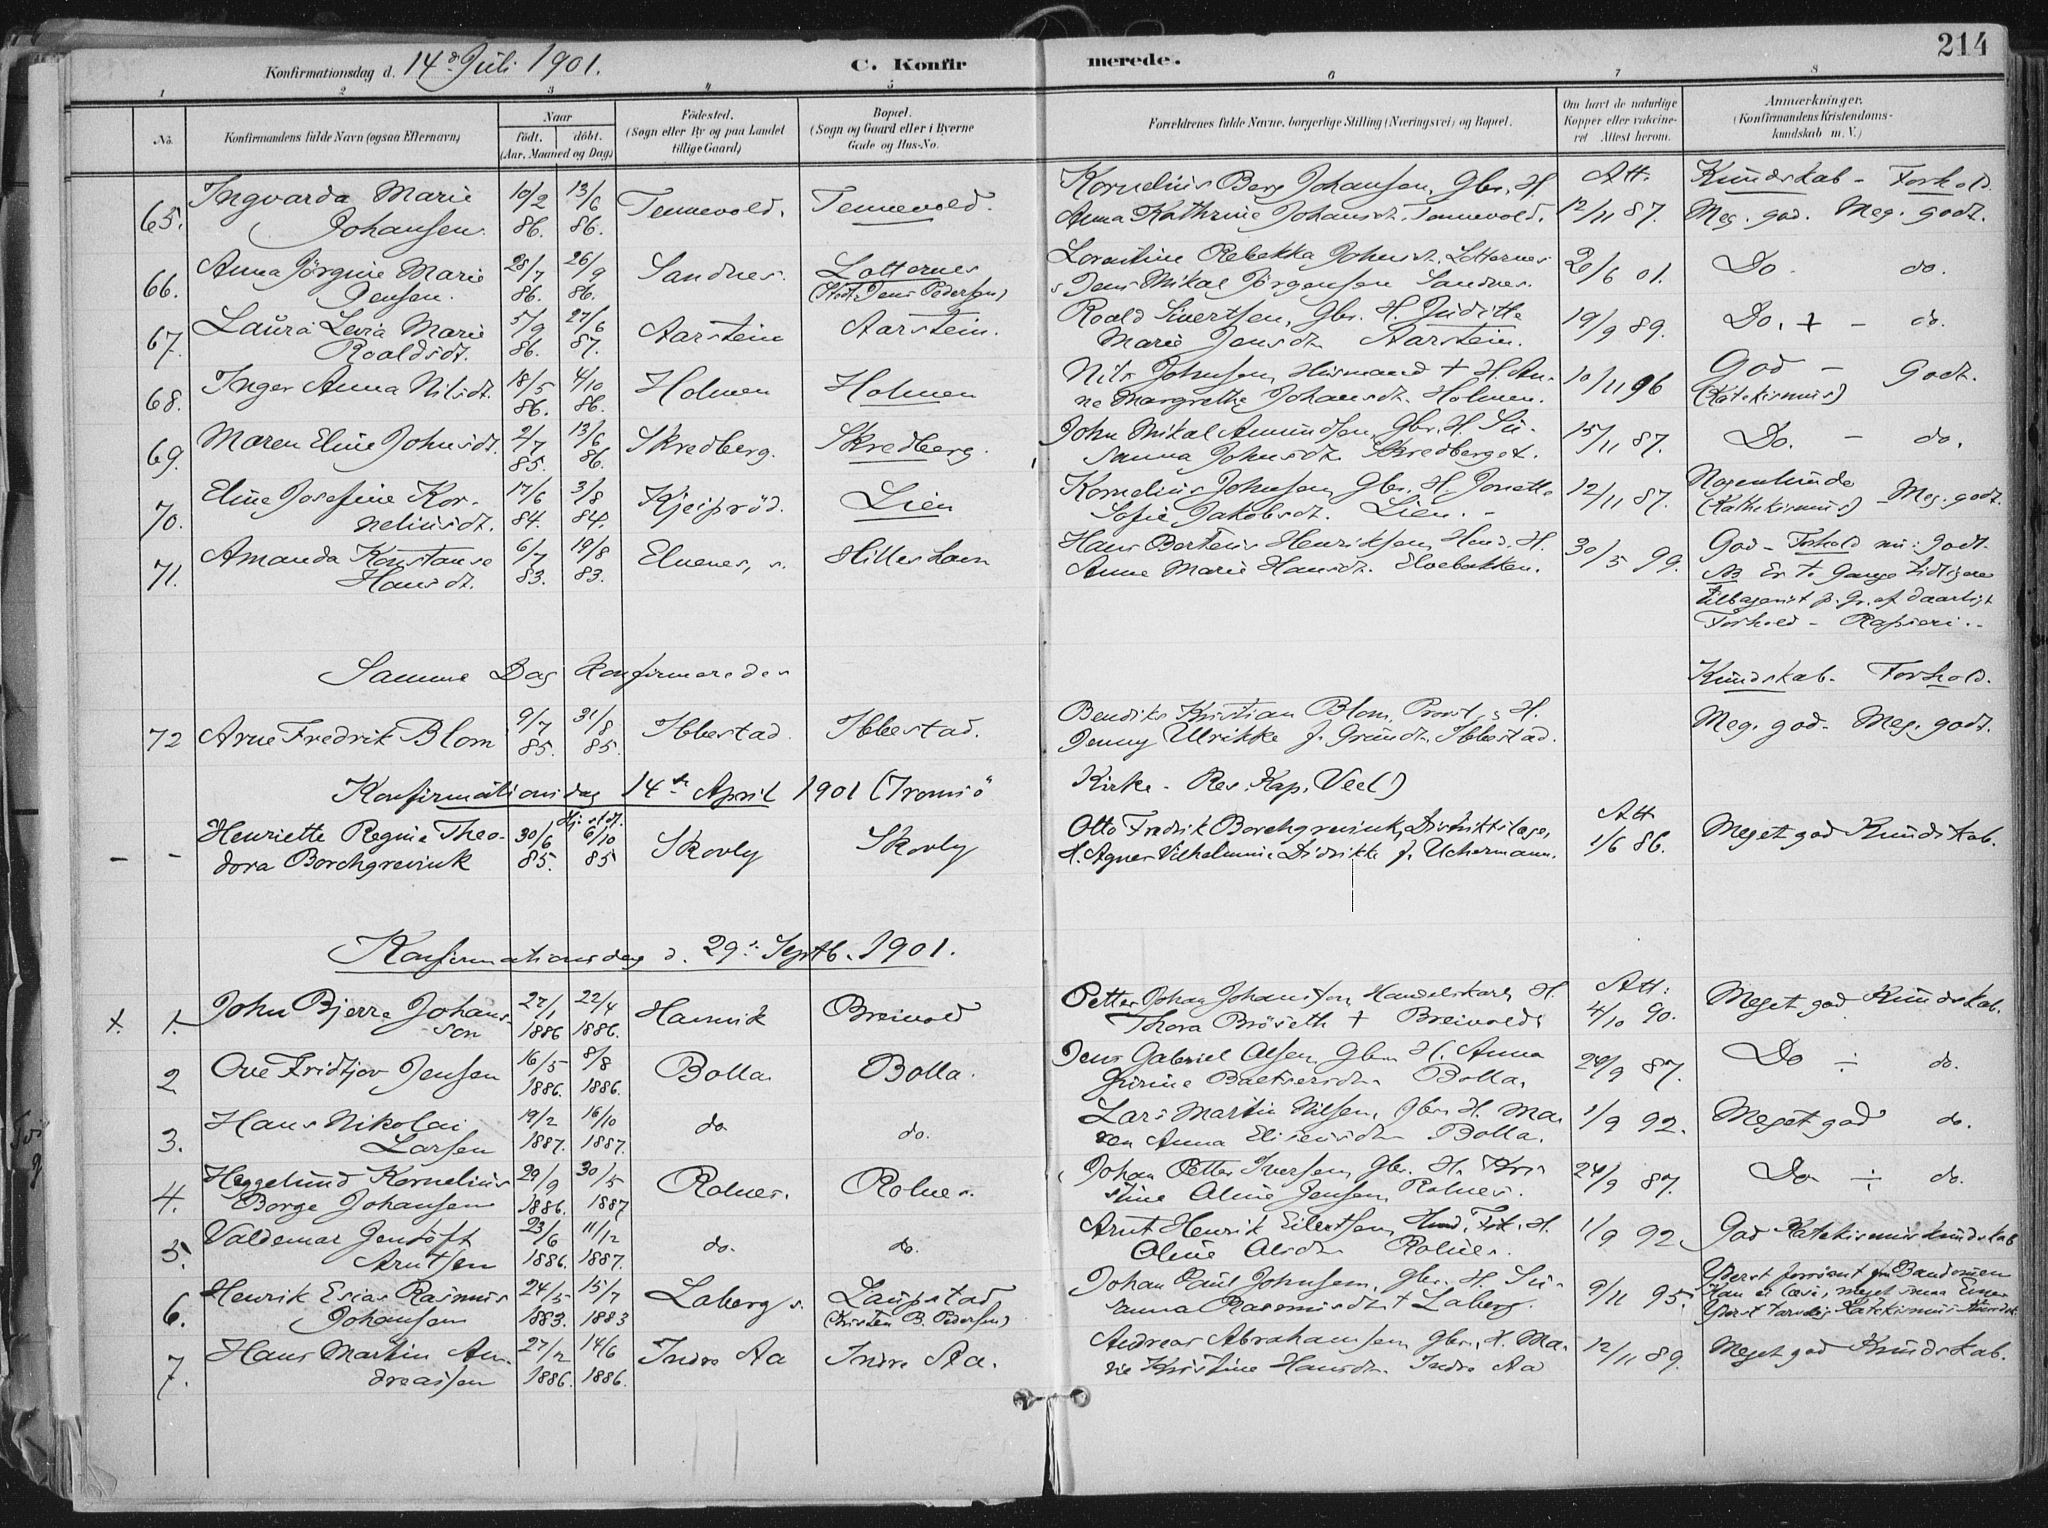 Konfirmationsdag d. 14de Juli 1901.
C. Konfirmerede.
214
1 2 3 4 5 6 7 8
No. Konfirmandens fulde Navn (ogsaa Efternavn) Naar født. døbt. (Aar, Maaned og Dag) Födested. (Sogn eller By og paa Landet tillige Gaard) Bopæl. (Sogn og Gaard eller i Byerne Gade og Hus-No. Forældrenes fulde Navne, borgerlige Stilling (Næringsvei) og Bopæl. Om havt de naturlige Kopper eller vaccineret Attest herom. Anmærkninger. (Konfirmandens Kristendomskundskab m. V.)
Att. Kundskab - Forhold
65. Ingvarda Marie Johansen. 10/2 86. 13/6 86. Tennevold. Tennevold. Kornelius Berg Johansen, Gbr. H. Anna Kathrine Johansdt. Tennevold. 12/11 87. Meg. god. Meg. godt.
66. Anna Jörgine Marie Jensen. 28/7 86. 26/9 86. Sandnes. Lotternes (Stedf. Jens Pedersen) Lorentine Rebekka Johnsdt. Lotternes s Jens Mikal Jörgensen Sandnes. 20/6 01. Do. do.
67. Laura Levia Marie Roaldsdt. 5/9 86. 27/6 87. Aarstein Aarstein. Roald Sivertsen, Gbr. H. Juditte Marie Jensdt. Aarstein. 19/9 89. Do. + - do.
68. Inger Anna Nilsdt. 18/5 86. 4/10 86. Holmen Holmen Nils Johnsen, Husmand + H. Anne Margrethe Johansdt. Holmen. 10/11 96 God - Godt. (Katekismus)
69. Maren Eline Johnsdt. 2/7 85. 13/6 86. Skredberg. Skredberg. John Mikal Amundsen, Gbr. H. Susanna Johnsdt. Skredberget. 15/11 87. Do. - do.
70. Eline Josefine Kornelinsdt. 17/6 84. 3/8 84. Kjeiprød. Lien Kornelius Johnsen, Gbr. H. Jonette Sofie Jakobsdt. Lien. - 12/11 87. Nogenlunde (Kathekismus) - Meg. godt.
71. Amanda Konstanse Hansdt. 6/7 83. 19/8 83. Elvenes, s. Hilleshavn Hans Berteus Henriksen, Hmd. H. Anne Marie Hansdt. Elvebakken. 30/5 99. God - Forhold nu: Godt.
NB Er to Gange tidligere
tilbagevist p. Gr. af daarligt
Forhold - Rapseri. -
Samme Dag konfirmeredes
Kundskab - Forhold.
72 Arne Fredrik Blom 9/7 85. 31/8 85. Ibbestad. Ibbestad. Bendiks Kristian Blom, Provst, & H. Jenny Ulrikke f. Grundt, Ibbestad. Meg. god - Meg. godt.
Konfirmationsdag 14de April 1901 (Tromsö Kirke - Res. Kap. Veel)
Hj. st dt. Att
- - Henriette Regine Theodora Borchgrevink 30/6 85. 6/10 85 Skovly Skovly Otto Fredrik Borchgrevink, Distriktslæge, H. Agnes Vilhelmine Didrikke f. Uchermann. 1/6 86. Meget god Kundskab.
Konfirmationsdag d. 29de Septb. 1901.
Att:
x. 1. John Bjerre Johansson 27/1 1886 22/4 1886. Hamnvik Breivold Petter Johan Johansson, Handelskarl, H. Thora Bröseth + Breivold 4/10 90. Meget god Kundskab.
2 Ove Fridtjov Jensen 16/5 1886. 8/8 1886. Bolla. Bolla. Jens Gabriel Olsen, Gbr. H. Anna Grimine Baltsersdtr. Bolla. 24/9 87. Do ÷ do.
3. Hans Nikolai Larsen 19/2 1887. 16/10 1887. do do. Lars Martin Nilsen, Gbr. H. Maren Anna Eliseusdtr Bolla. 1/9 92. Meget god do.
4. Heggelund Kornelius Borge Johansen 20/9 1886. 30/5 1887 Rolnes. Rolnes. Johan Petter Iversen, Gbr. H. Kristine Oline Jensen, Rolnes. 24/9 87. Do ÷ do.
5. Valdemar Jentoft Arntsen 23/6 1886. 11/12 1887. do. do. Arnt Henrik Eilertsen, Hmd. Fisk. H. Oline Olsdtr Rolnes. 1/9 92. God Katekismuskundskab
6. Henrik Esias Rasmus Johansen 24/5 1883. 15/7 1883 Laberg s. Laupstad (Kristen B. Pedersen) Johan Paul Johnsen, Gbr. H. Susanna Rasmusdt. + Laberg. 9/11 95. Yderst forsömt fra Barndommen
Yderst tarvelig Katekismus-kundsk.
7. Hans Martin Andreassen 27/2 1886. 14/6 1886. Indre Aa Indre Aa. Andreas Abrahamsen, Gbr. H. Marie Kristine Hansdtr. Indre Aa 12/11 89. Meget god Kundskab.